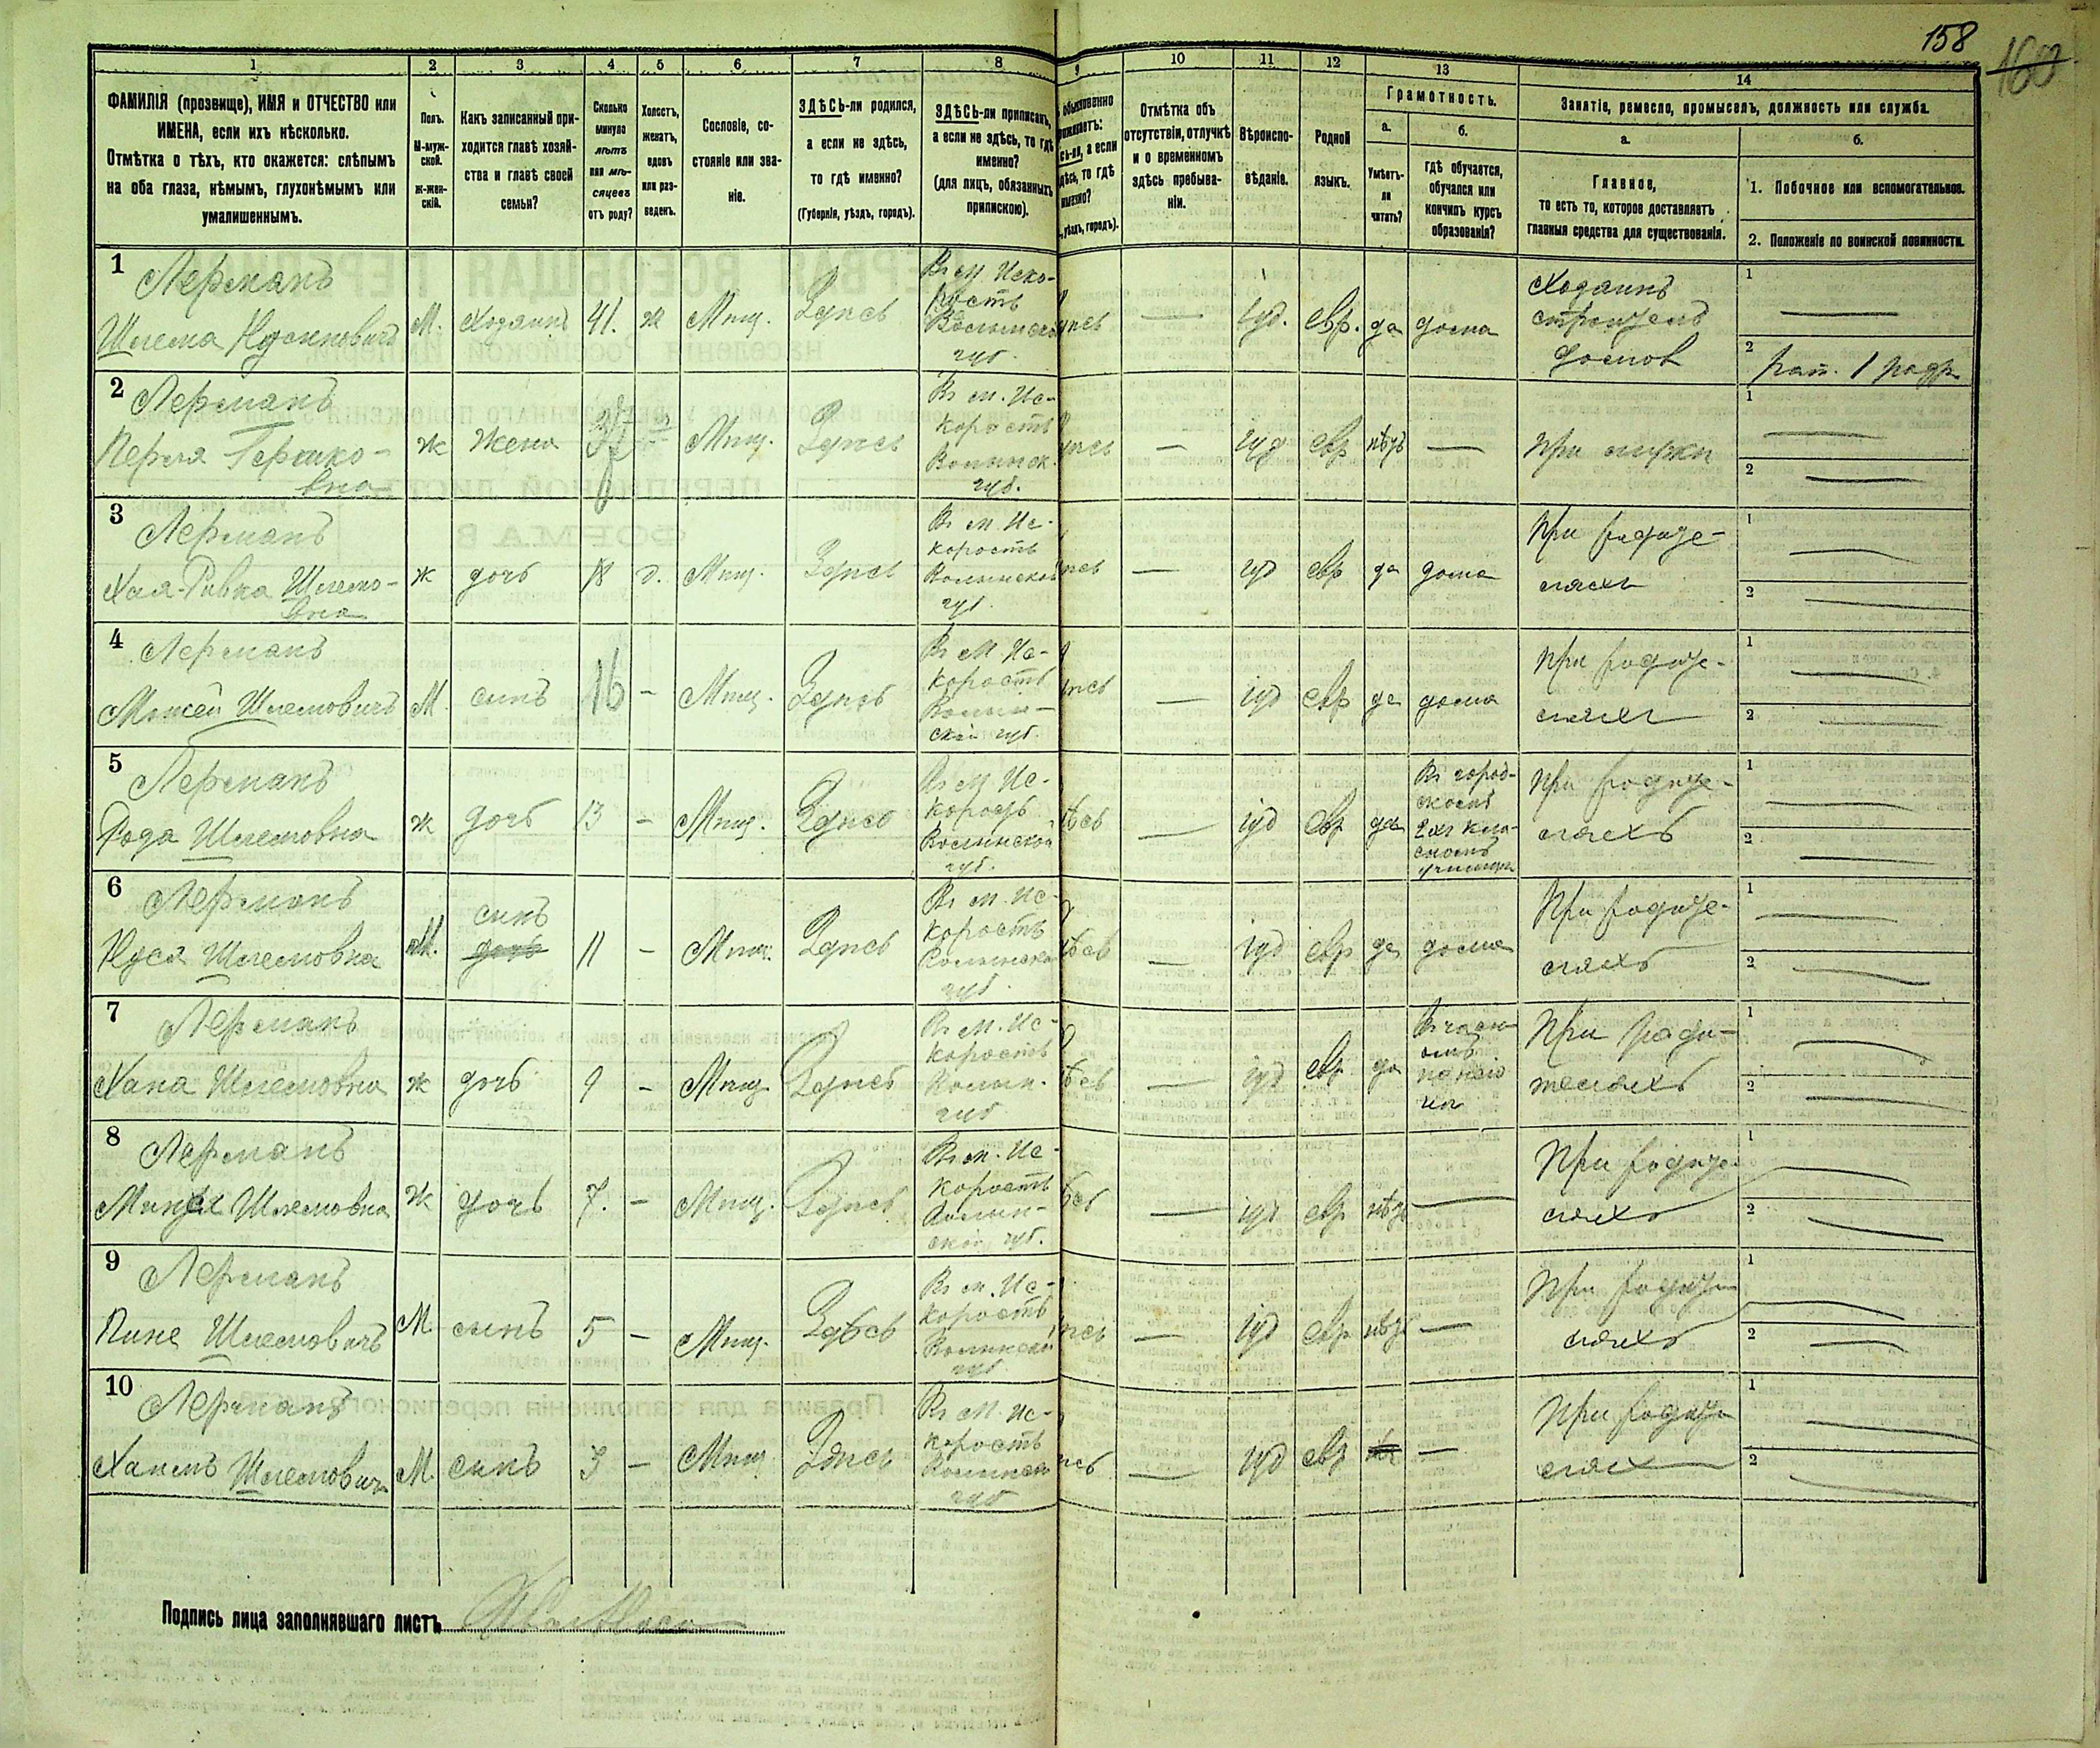 158
160
1
2
3
4
5
6
7
8
9
10
11
12
13
14
ФАМИЛІЯ (прозвище), ИМЯ и ОТЧЕСТВО или
ИМЕНА, если ихъ нѣсколько.
Отмѣтка о тѣхъ, кто окажется: слѣпымъ
на оба глаза, нѣмымъ, глухонѣмымъ или
умалишеннымъ.
Полъ.
М-муж-
ской.
Ж-жен-
скій.
Какъ записанный при-
ходится главѣ хозяй-
ства и главѣ своей
семьи?
Сколько
минуло
лѣтъ
или мѣ-
сяцевъ
отъ роду?
Холостъ,
женатъ,
вдовъ
или раз-
веденъ.
Сословіе, со-
стояніе или зва-
ніе.
ЗДѢСЬ-ли родился,
а если не здѣсь,
то гдѣ именно?
(Губернія, уѣздъ, городъ).
ЗДѢСЬ-ли приписанъ,
а если не здѣсь, то гдѣ
именно?
(для лицъ, обязанныхъ
припискою).
обыкновенно
а если
то гдѣ
именно?
уѣздъ, городъ).
Отмѣтка объ
отсутствіи, отлучкѣ
и о временномъ
здѣсь пребыва-
ніи.
Вѣроиспо-
вѣданіе.
Родной
языкъ.
Грамотность.
а.
Умѣетъ-
ли
читать?
б.
гдѣ обучается,
обучался или
кончилъ курсъ
образованія?
Занятіе, ремесло, промыселъ, должность или служба.
а.
Главное,
то есть то, которое доставляетъ
главныя средства для существованія.
б.
1. Побочное или вспомогательное.
2. Положеніе по воинской повинности.
1
Лерманъ
Шлема
М.
Хозяинъ
41.
ж
Мѣщ.
Здѣсь
Въ м. Иско-
рость
Волынской
губ.
іуд.
евр.
да
дома
Хозяинъ
домов
1
2
2
Лерманъ
Перля Гершко-
вна
ж
жена
Мѣщ.
Здѣсь
Въ м. Ис-
корость
Волынск.
губ.
—
іуд
евр
нѣтъ
—
При мужѣ
1
2
3
Лерманъ
Хая-Ривка Шлемо-
вна
ж
дочь
18
д.
Мѣщ.
Здѣсь
Въ м. Ис-
корость
Волынской
губ.
—
іуд
евр
да
дома
При родите-
ляхъ
1
2
4
Лерманъ
Мошей Шлемовичъ
М
сынъ
16
-
Мѣщ.
Здѣсь
Въ м. Ис-
корость
Волын-
ской губ.
—
іуд
евр
да
дома
При родите-
ляхъ
1
2
5
Лерманъ
Рода Шлемовна
ж
дочь
13
-
Мѣщ.
Здѣсь
Въ м. Ис-
корость
Волынской
губ.
—
іуд
евр
да
Въ город-
скомъ
2хъ кла-
сномъ
училищѣ
При родите-
ляхъ
1
2
6
Лерманъ
Нуся Шлемовна
М.
сынъ
дочь
11
-
Мѣщ.
Здѣсь
Въ м. Ис-
корость
Волынской
губ.
—
іуд
евр
да
дома
При родите-
ляхъ
1
2
7
Лерманъ
Хана Шлемовна
ж
дочь
9
-
Мѣщ
Здѣсь
Въ м. Ис-
корость
Волын.
губ
—
іуд
евр
да
При роди-
теляхъ
1
2
8
Лерманъ
Шлемовна
ж
дочь
7.
-
Мѣщ.
Здѣсь
Въ м. Ис-
корость
Волын-
ской губ.
—
іуд
евр
нѣтъ
—
При родите-
ляхъ
1
2
9
Лерманъ
Пине Шлемовичъ
М
сынъ
5
-
Мѣщ.
Здѣсь
Въ м. Ис-
корость
Волынской
губ
—
іуд
евр
нѣтъ
—
При родите-
ляхъ
1
2
10
Лерманъ
Шлемович
М
сынъ
3
-
Мѣщ
Здѣсь
Въ м. Ис-
корость
Волынской
губ
—
іуд
евр
—
При родите-
лях
1
2
Подпись лица заполнявшаго листъ